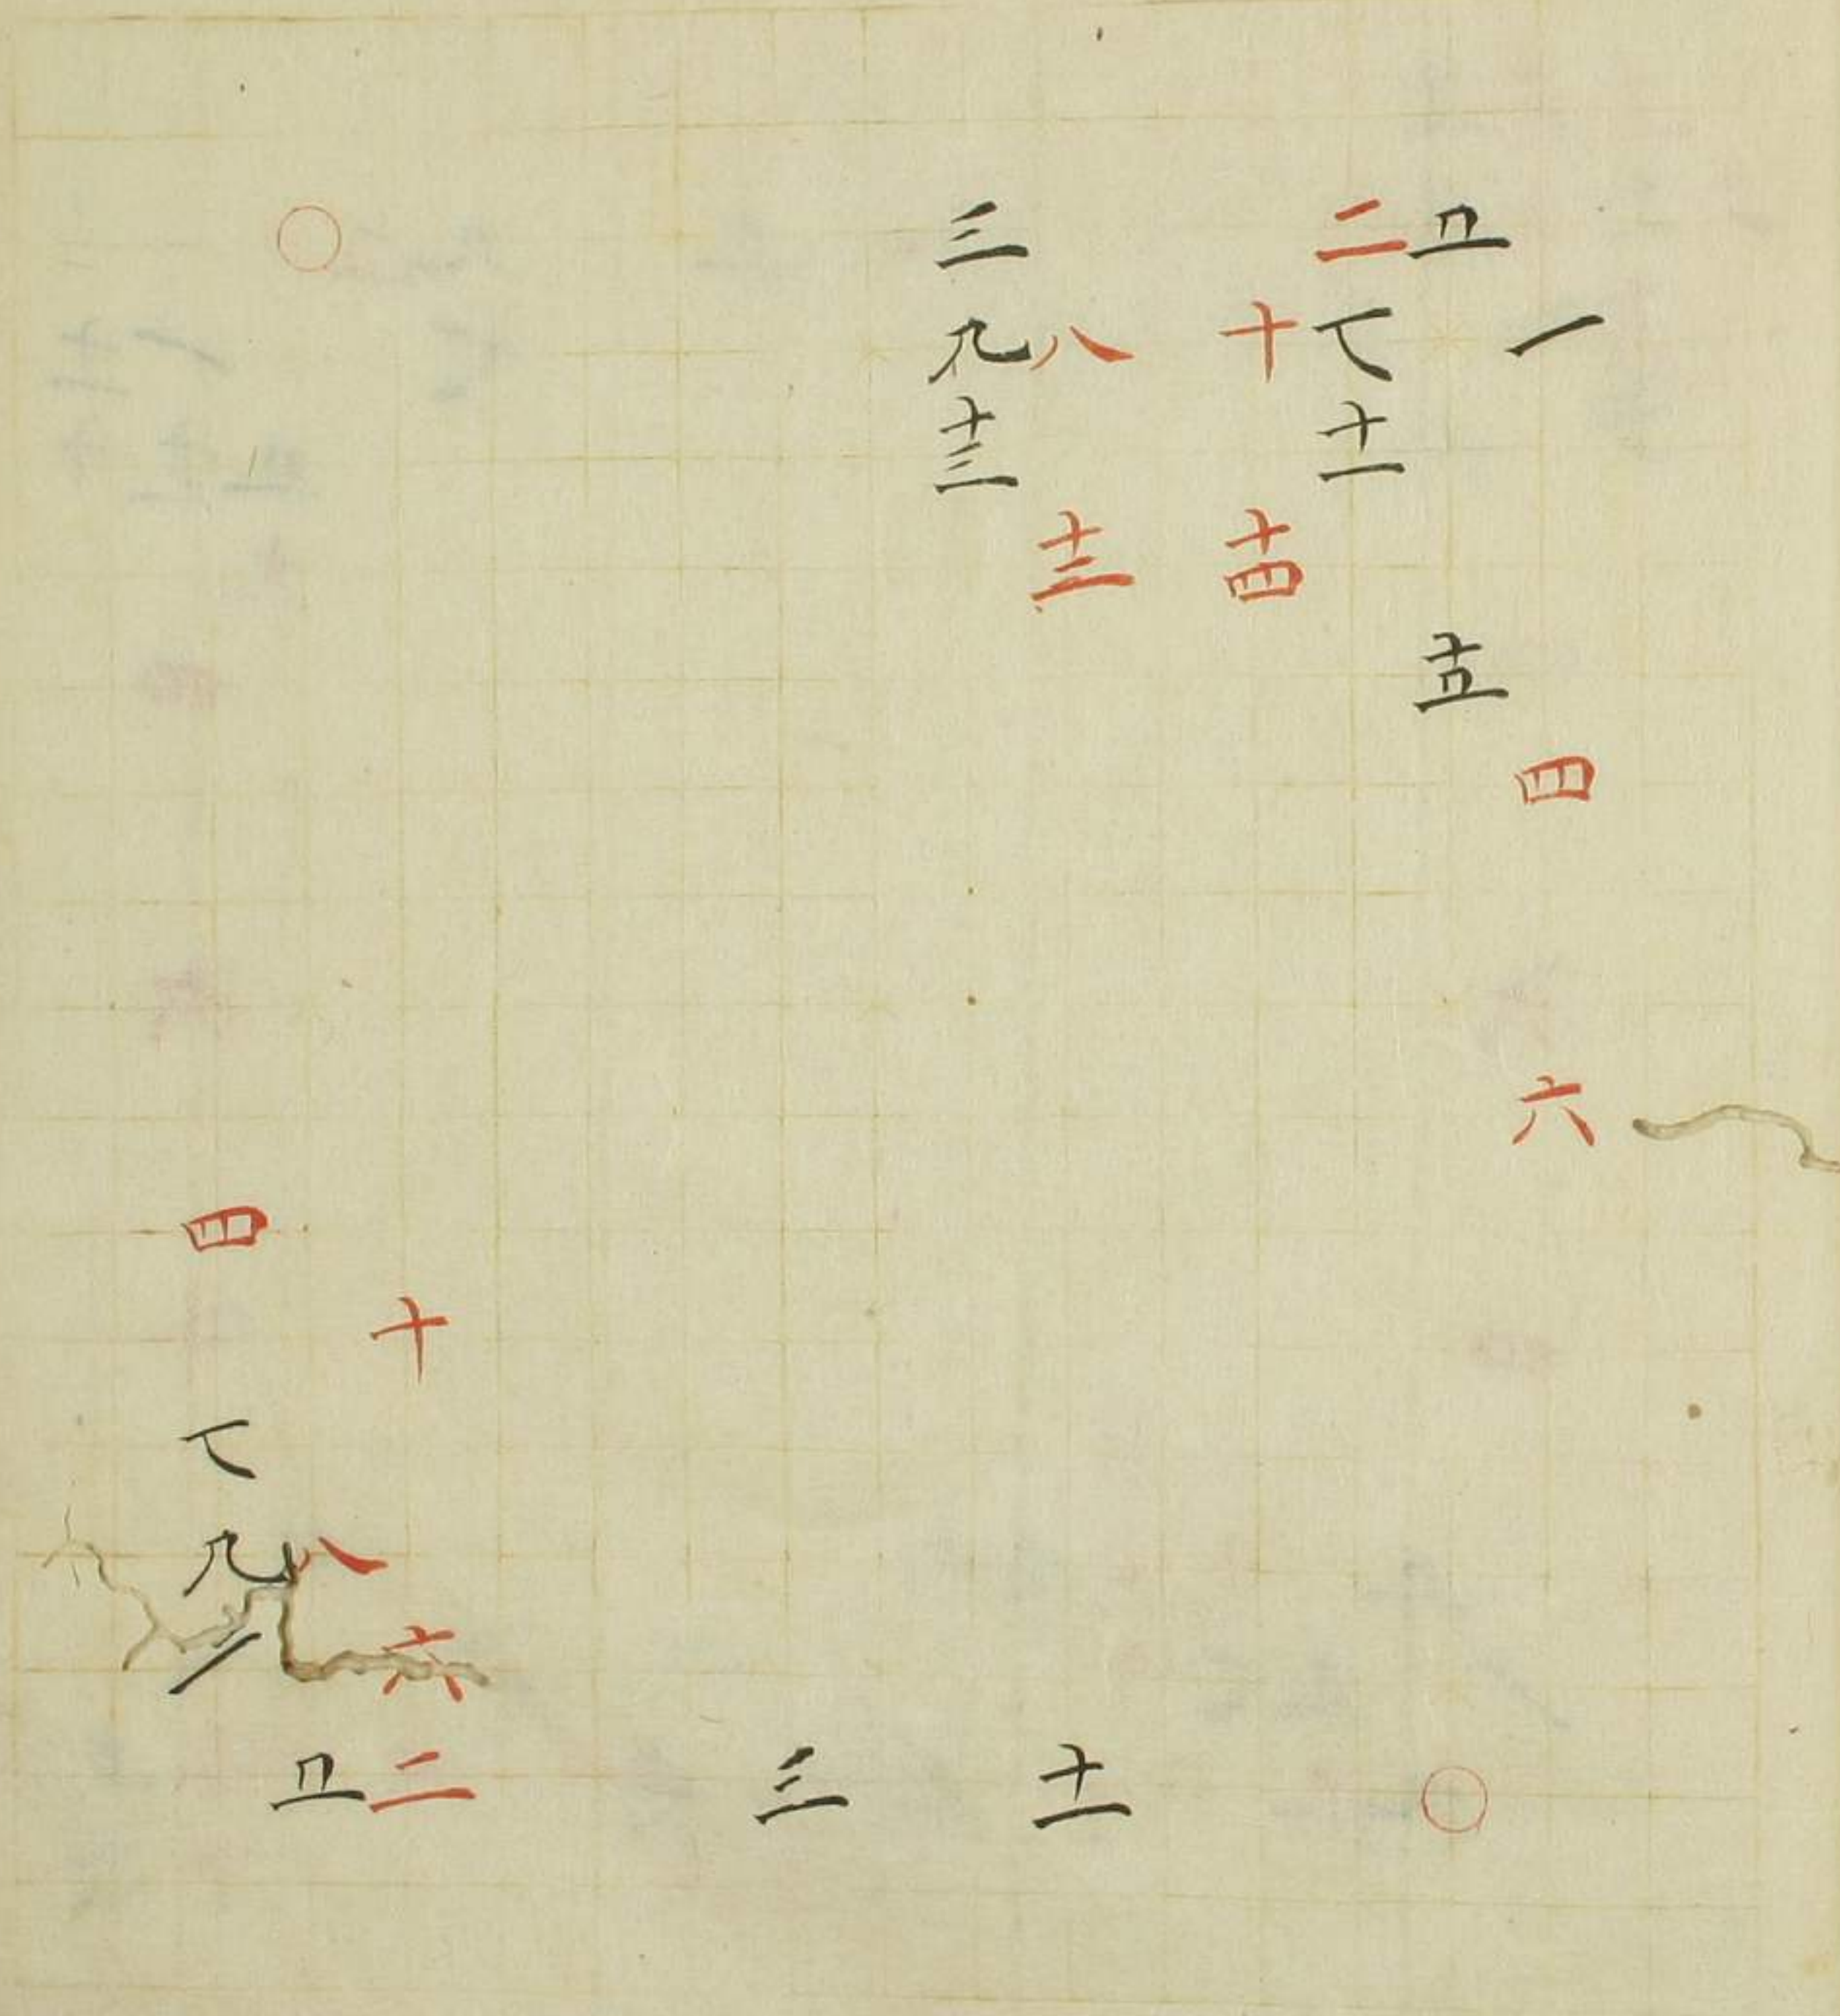 三 二 五
九 八 十 七 一
十三 十一
十二 十四
十五
四
六
四
十
七
九 八
一 六
五 二 三 十一